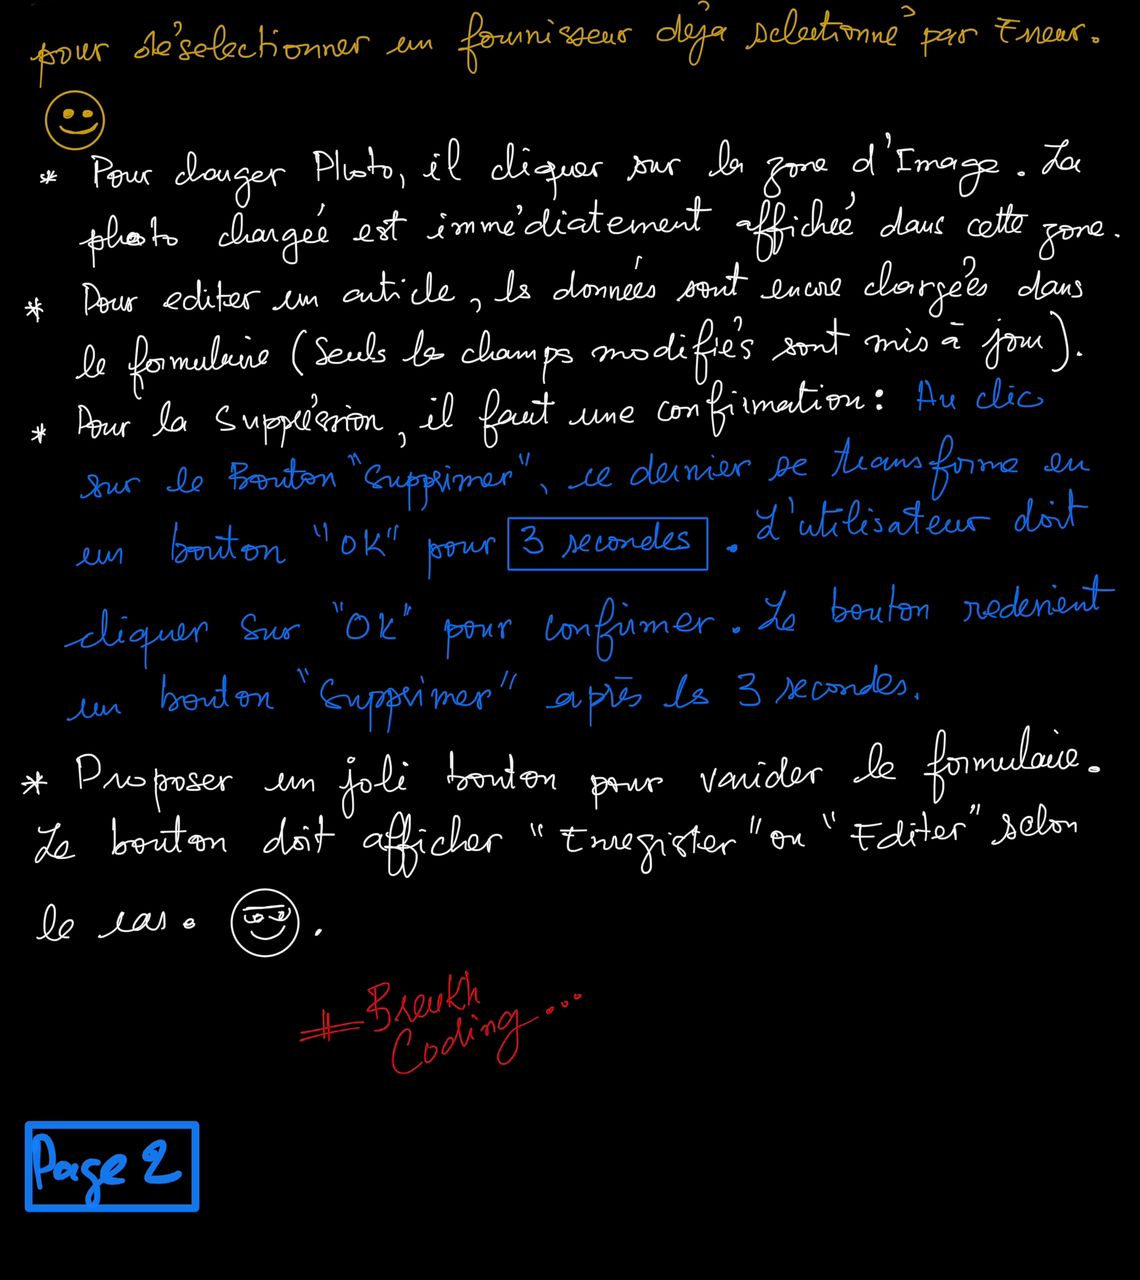 pour désélectionner un fournisseur déjà sélectionné par Erreur.
* Pour charger Photo, il cliquer sur la zone d'Image. La
photo chargée est immédiatement affichée dans cette zone.
* Pour editer un article, les données sont encore chargées dans
le formulaire (Seuls les champs modifiés sont mis à jour).
* Pour la Suppression, il faut une confirmation: Au clic
sur le Bouton "Supprimer", ce dernier se transforme en
un bouton "OK" pour 3 secondes. L'utilisateur doit
cliquer sur "OK" pour confirmer. Le bouton redevient
un bouton "Supprimer" après les 3 secondes.
* Proposer un joli bouton pour valider le formulaire.
Le bouton doit afficher "Enregister" ou "Editer" selon
le cas.
# Breukh
Coding...
Page 2